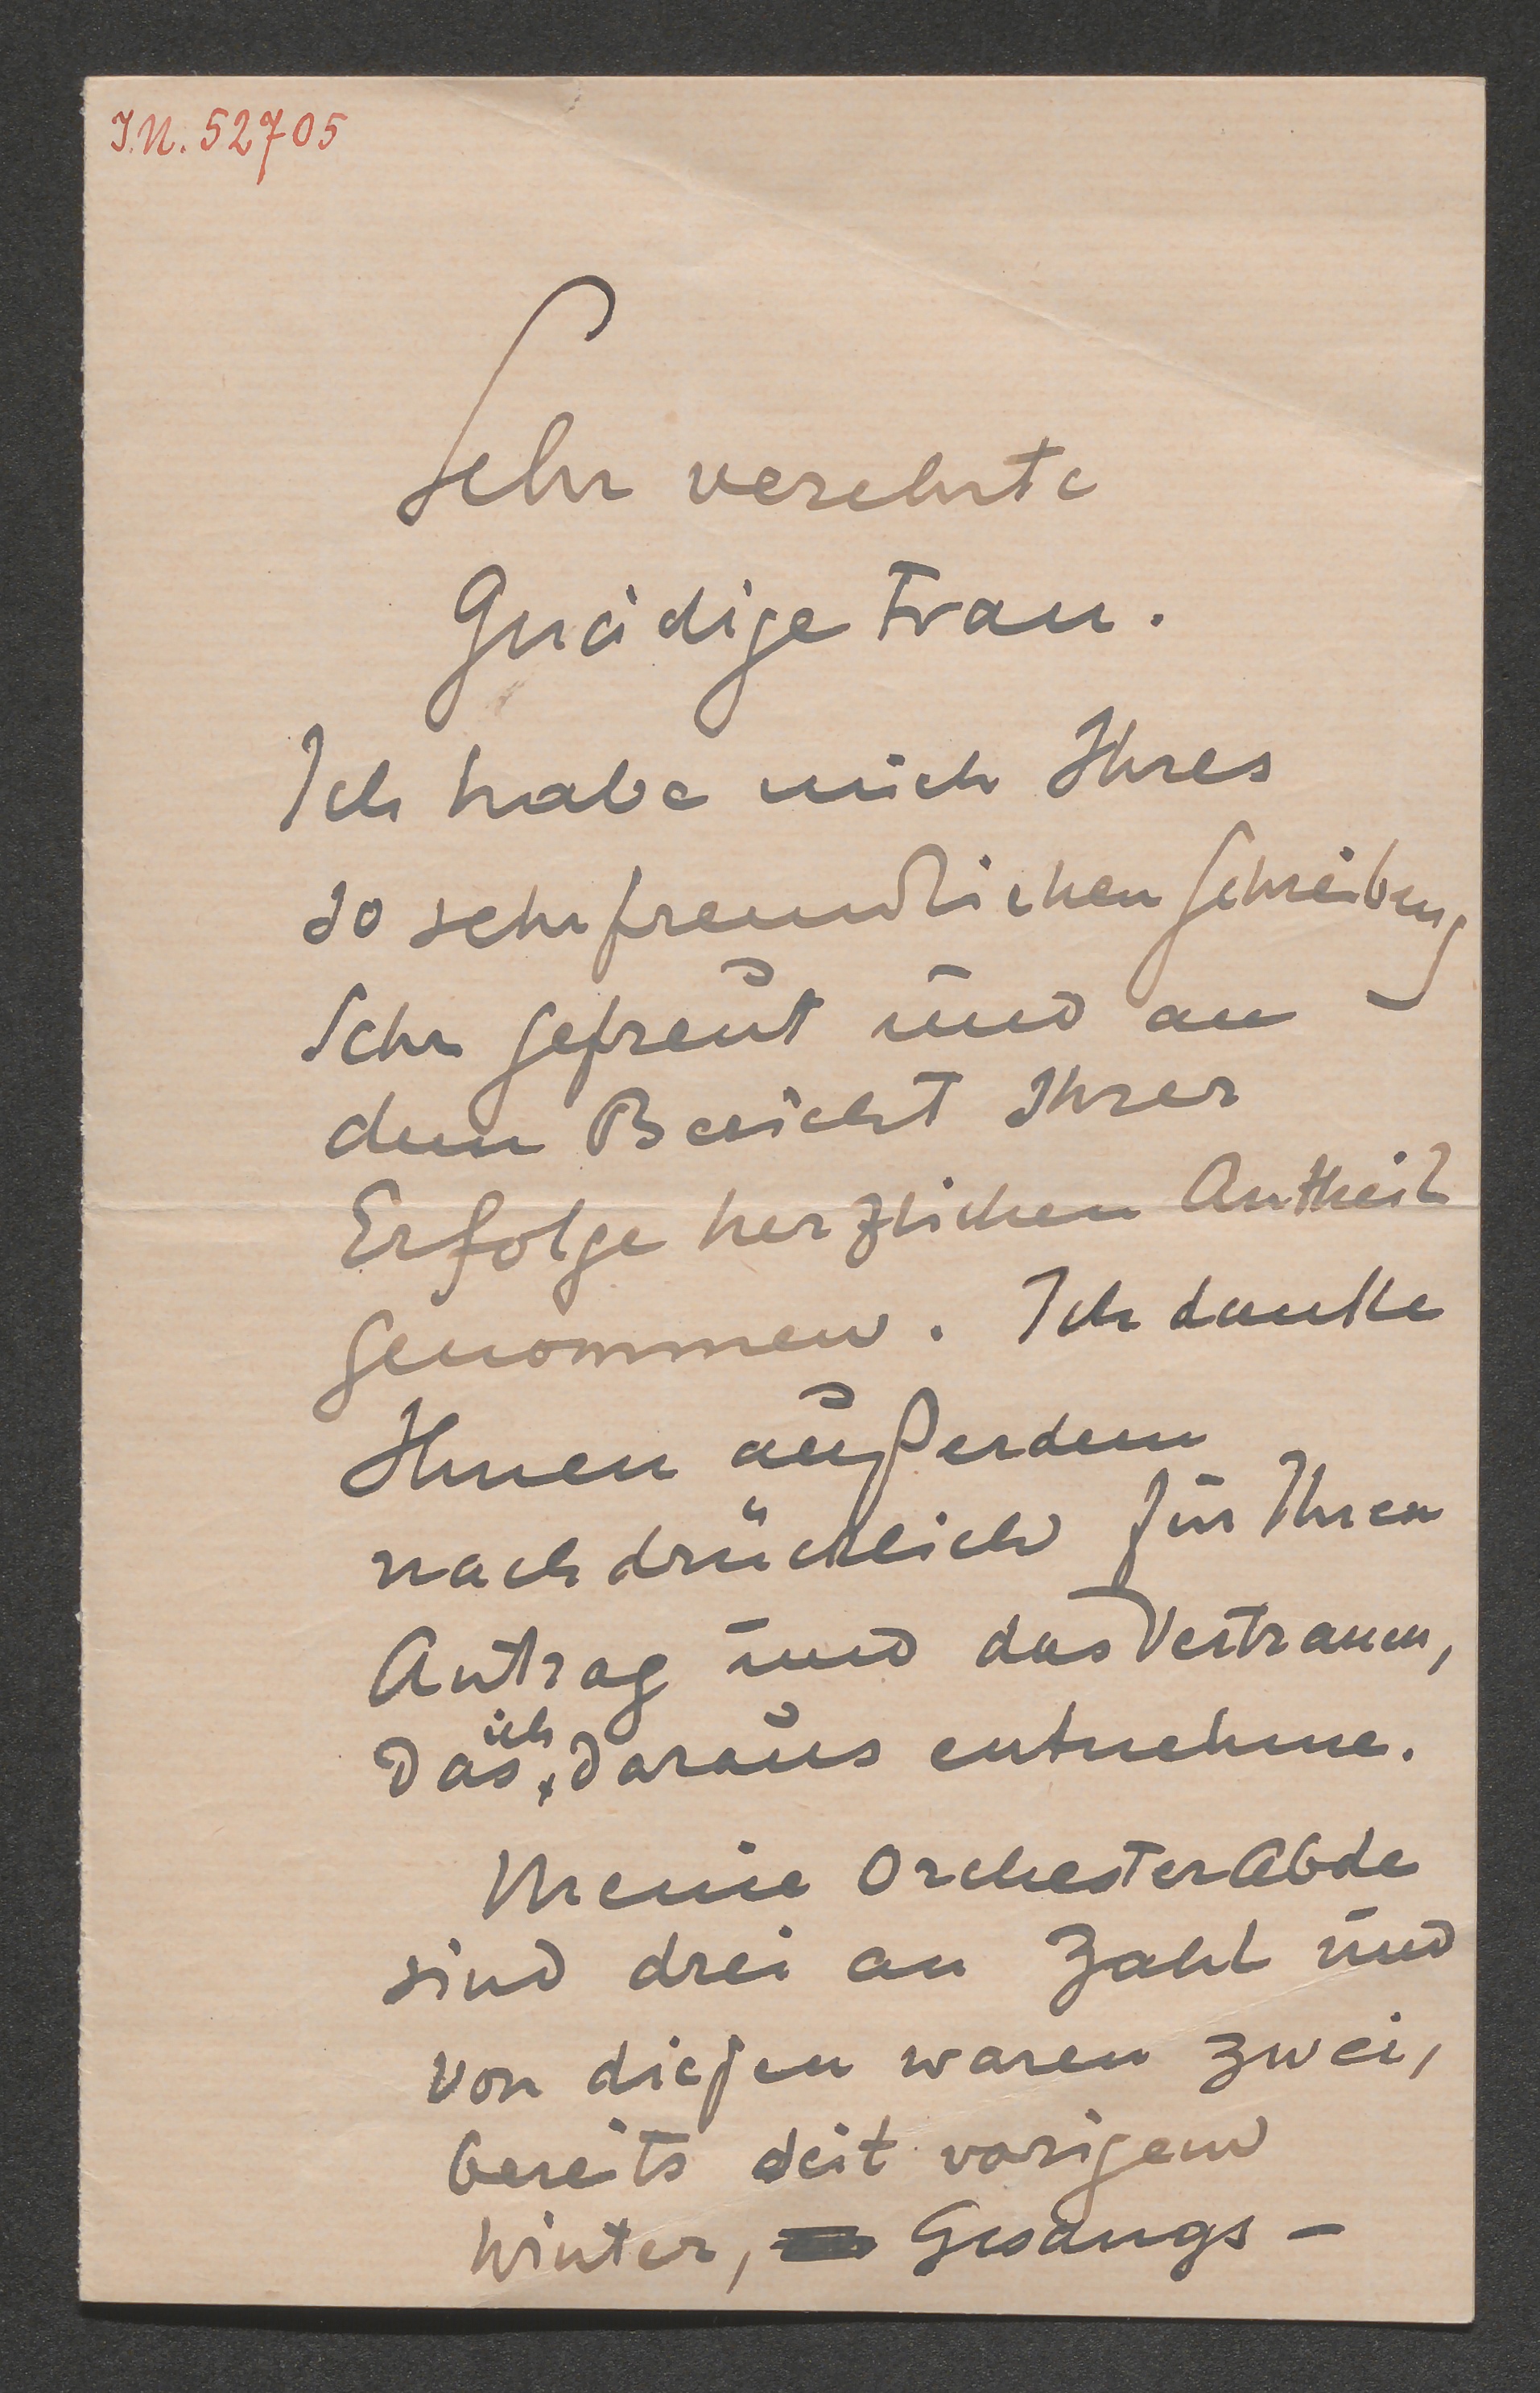 I.N. 52705
Sehr verehrte
Gnädige Frau.
Ich habe mich Ihres
so sehr freundlichen Schreibens
Sehr gefreut und an
dem Bericht Ihrer
Erfolge herzlichen Antheil
genommen. Ich danke
Ihnen außerdem
nachdrücklich für Ihren
Antrag und das Vertrauen,
das ich daraus entnehme.
Meine OrchesterAbde
sind drei an Zahl und
von diesen waren zwei,
bereits seit vorigem
Winter, Gesangs-